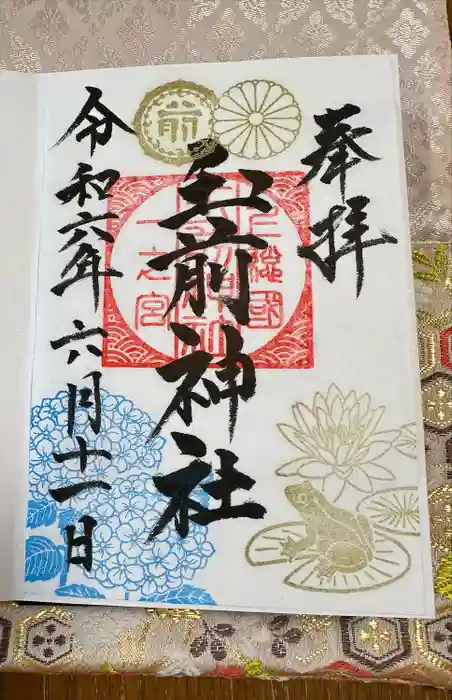 奉拝
玉前神社
上総國
一之宮
令和六年六月十一日
前